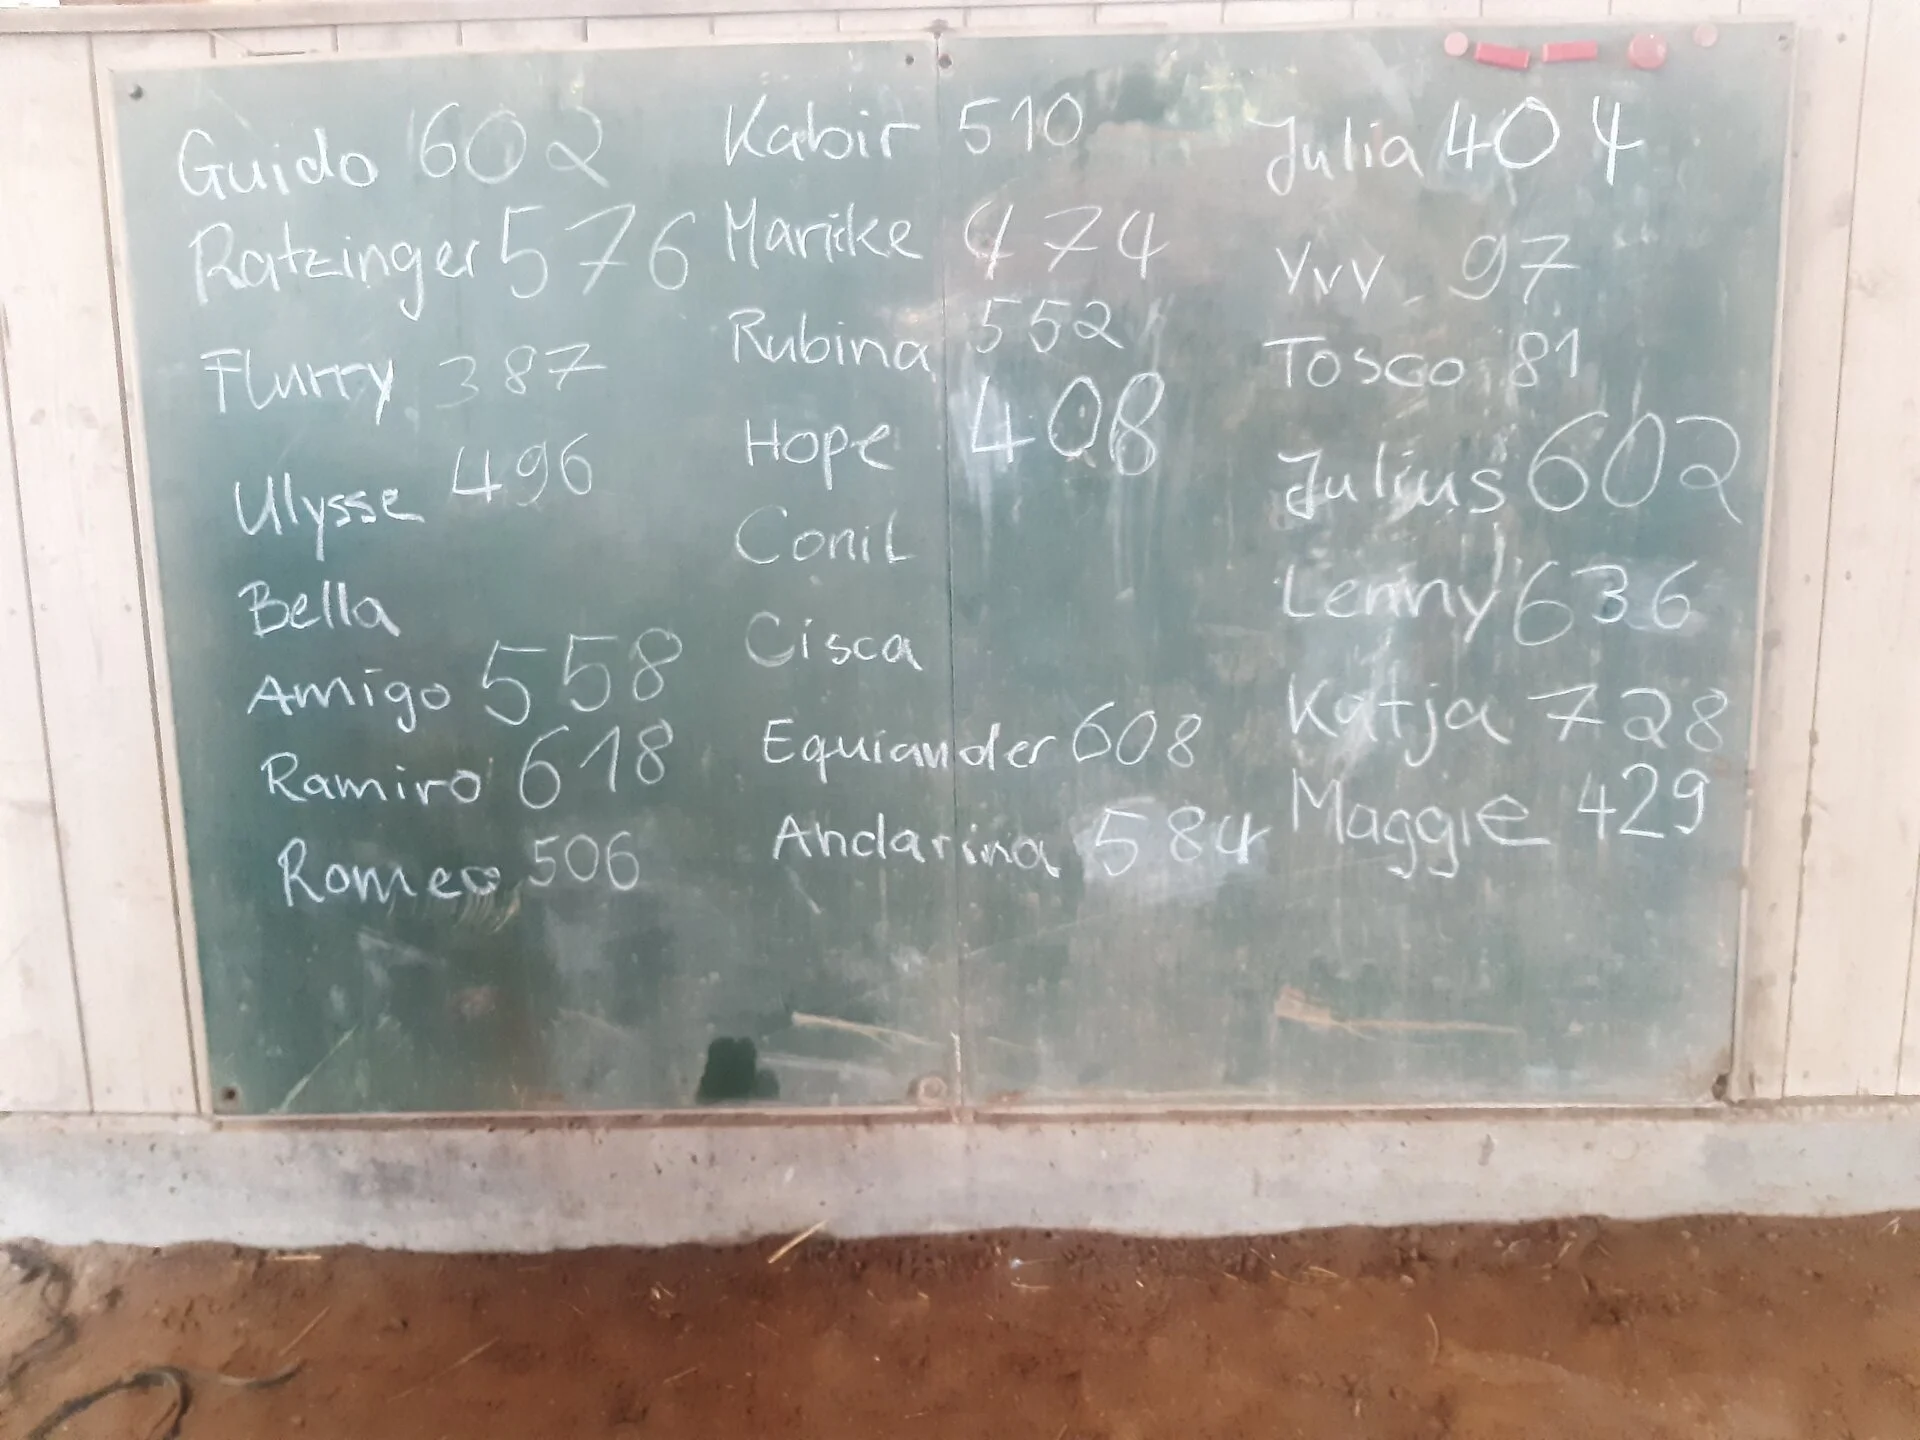 Guido 602
Ratzinger 576
Flurry 387
Ulysse 496
Bella
Amigo 558
Ramiro 618
Romeo 506
Kabir 510
Marike 474
Rubina 552
Hope 408
Conil
Cisca
Equiander 608
Andarina 584
Julia 404
Yvy 97
Tosco 81
Julius 602
Lenny 636
Katja 728
Maggie 429